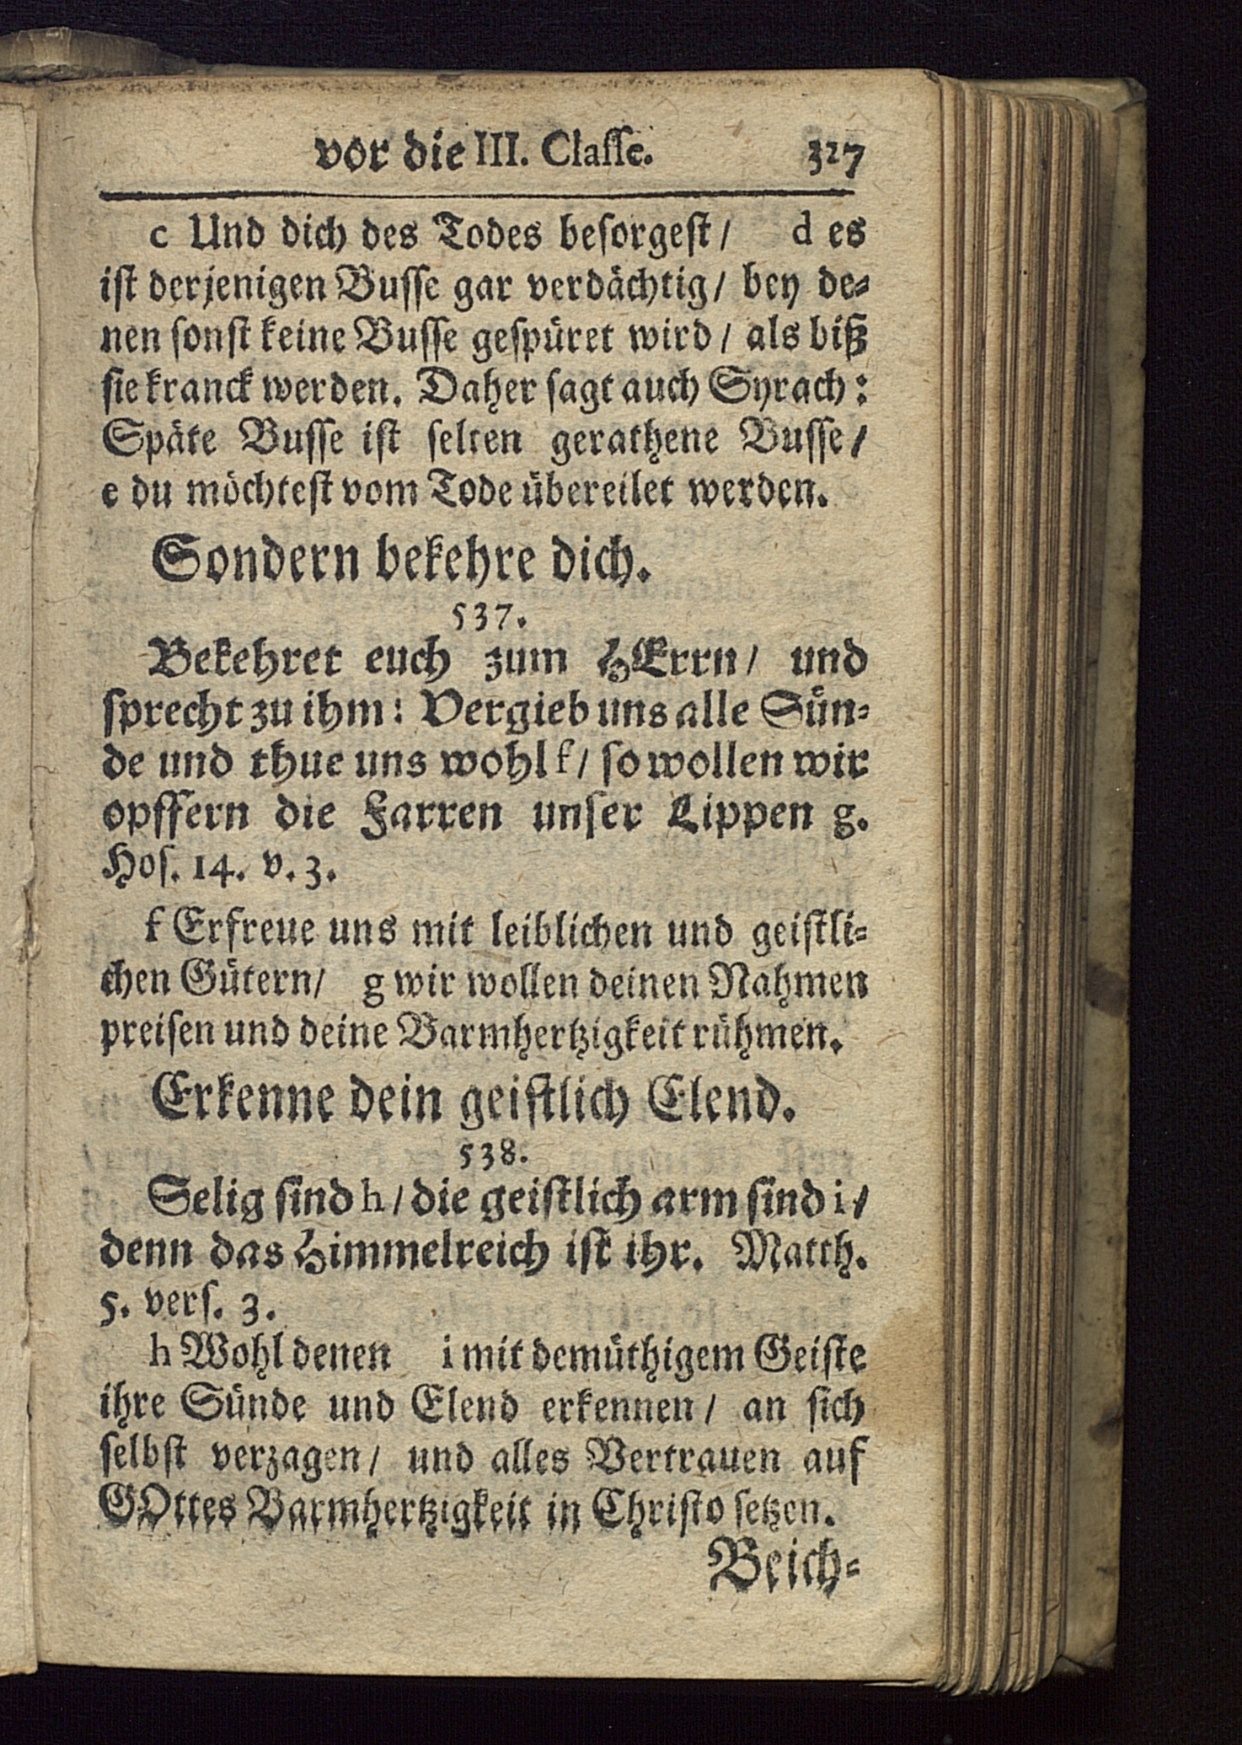 vor die III. Classe. 327
c Und dich des Todes besorgest / d es
ist derjenigen Busse gar verdächtig / bey de-
nen sonst keine Busse gespüret wird / als biß
sie kranck werden. Daher sagt auch Syrach:
Späte Busse ist selten gerathene Busse /
e du möchtest vom Tode übereilet werden.
Sondern bekehre dich.
537.
Bekehret euch zum HErrn / und
sprecht zu ihm: Vergieb uns alle Sün-
de und thue uns wohl f / so wollen wir
opffern die Farren unser Lippen g.
Hos. 14. v. 3.
f Erfreue uns mit leiblichen und geistli-
chen Gütern / g wir wollen deinen Nahmen
preisen und deine Barmhertzigkeit rühmen.
Erkenne dein geistlich Elend.
538.
Selig sind h / die geistlich arm sind i /
denn das Himmelreich ist ihr. Matth.
5. vers. 3.
h Wohl denen i mit demüthigem Geiste
ihre Sünde und Elend erkennen / an sich
selbst verzagen / und alles Vertrauen auf
GOttes Barmhertzigkeit in Christo setzen.
Beich-